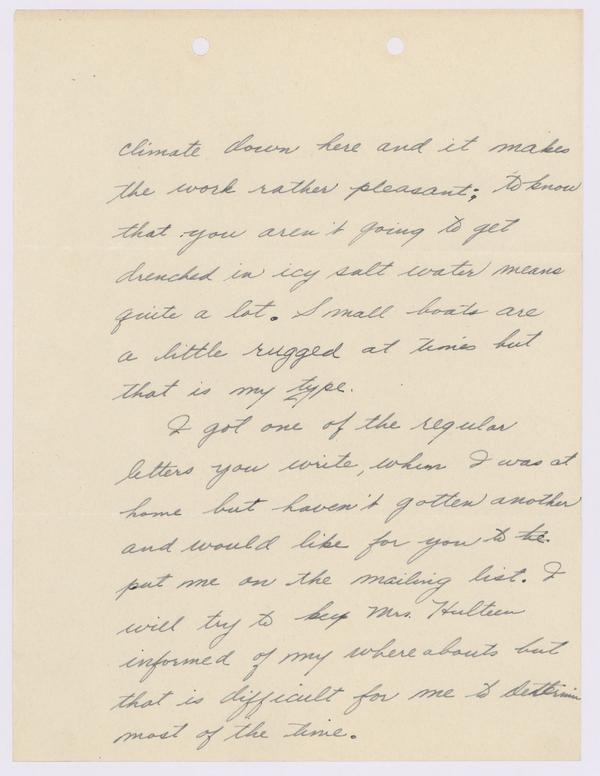 climate down here and it makes
the work rather pleasant; to know
that you aren't going to get
drenched in icy salt water means
quite a lot. Small boats are
a little rugged at times but
that is my type.
I got one of the regular
letters you write, when I was at
home but haven't gotten another
and would like for you to
put me on the mailing list. I
will try to keep Mrs. Hulteen
informed of my whereabouts but
that is difficult for me to
most of the time.